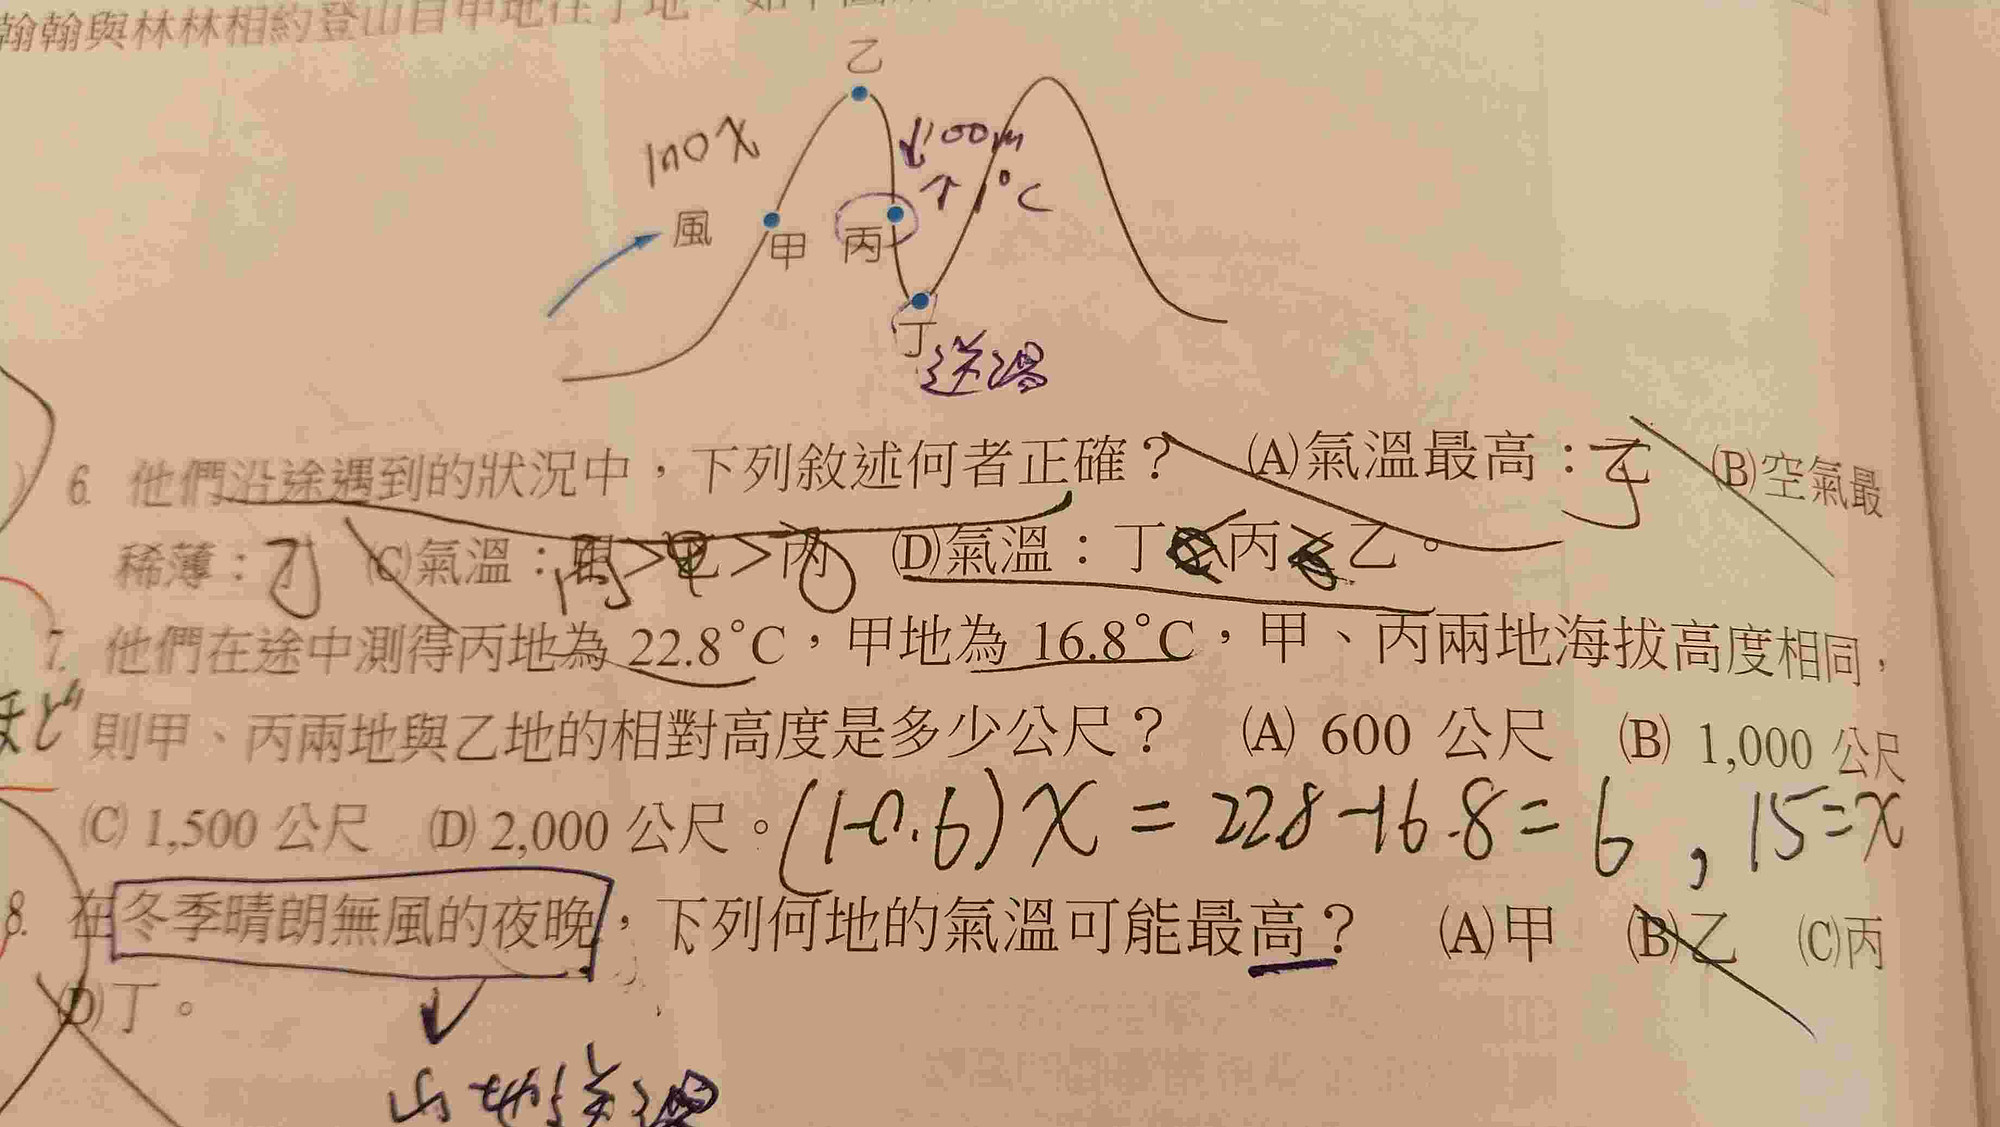 翰翰與林林相約登山自甲地往丁地
乙
100x
100m
↑1°C
風
甲
丙
丁
逆溫
6. 他們沿途遇到的狀況中，下列敘述何者正確？ (A)氣溫最高： (B)空氣最
稀薄： (C)氣溫：>>丙 (D)氣溫：丁丙乙。
7. 他們在途中測得丙地為 22.8°C，甲地為 16.8°C，甲、丙兩地海拔高度相同，
則甲、丙兩地與乙地的相對高度是多少公尺？ (A) 600 公尺 (B) 1,000 公尺
(C) 1,500 公尺 (D) 2,000 公尺。(1-0.6)x = 22.8-16.8=6，15=x
8. 在冬季晴朗無風的夜晚，下列何地的氣溫可能最高？ (A)甲 (B)乙 (C)丙
(D)丁。
山地逆溫